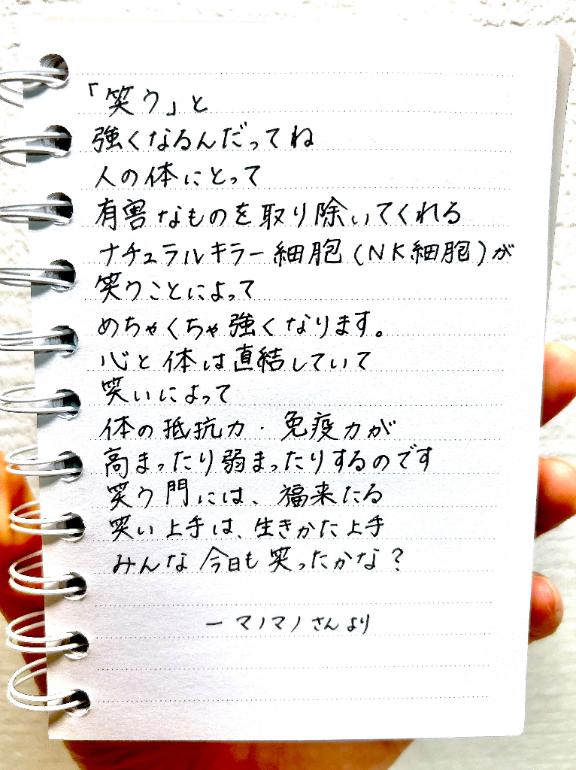 「笑う」と
強くなるんだってね
人の体にとって
有害なものを取り除いてくれる
ナチュラルキラー細胞(NK細胞)が
笑うことによって
めちゃくちゃ強くなります。
心と体は直結していて
笑いによって
体の抵抗力・免疫力が
高まったり弱まったりするのです
笑う門には、福来たる
笑い上手は、生きかた上手
みんな今日も笑ったかな?
ーマノマノさんより